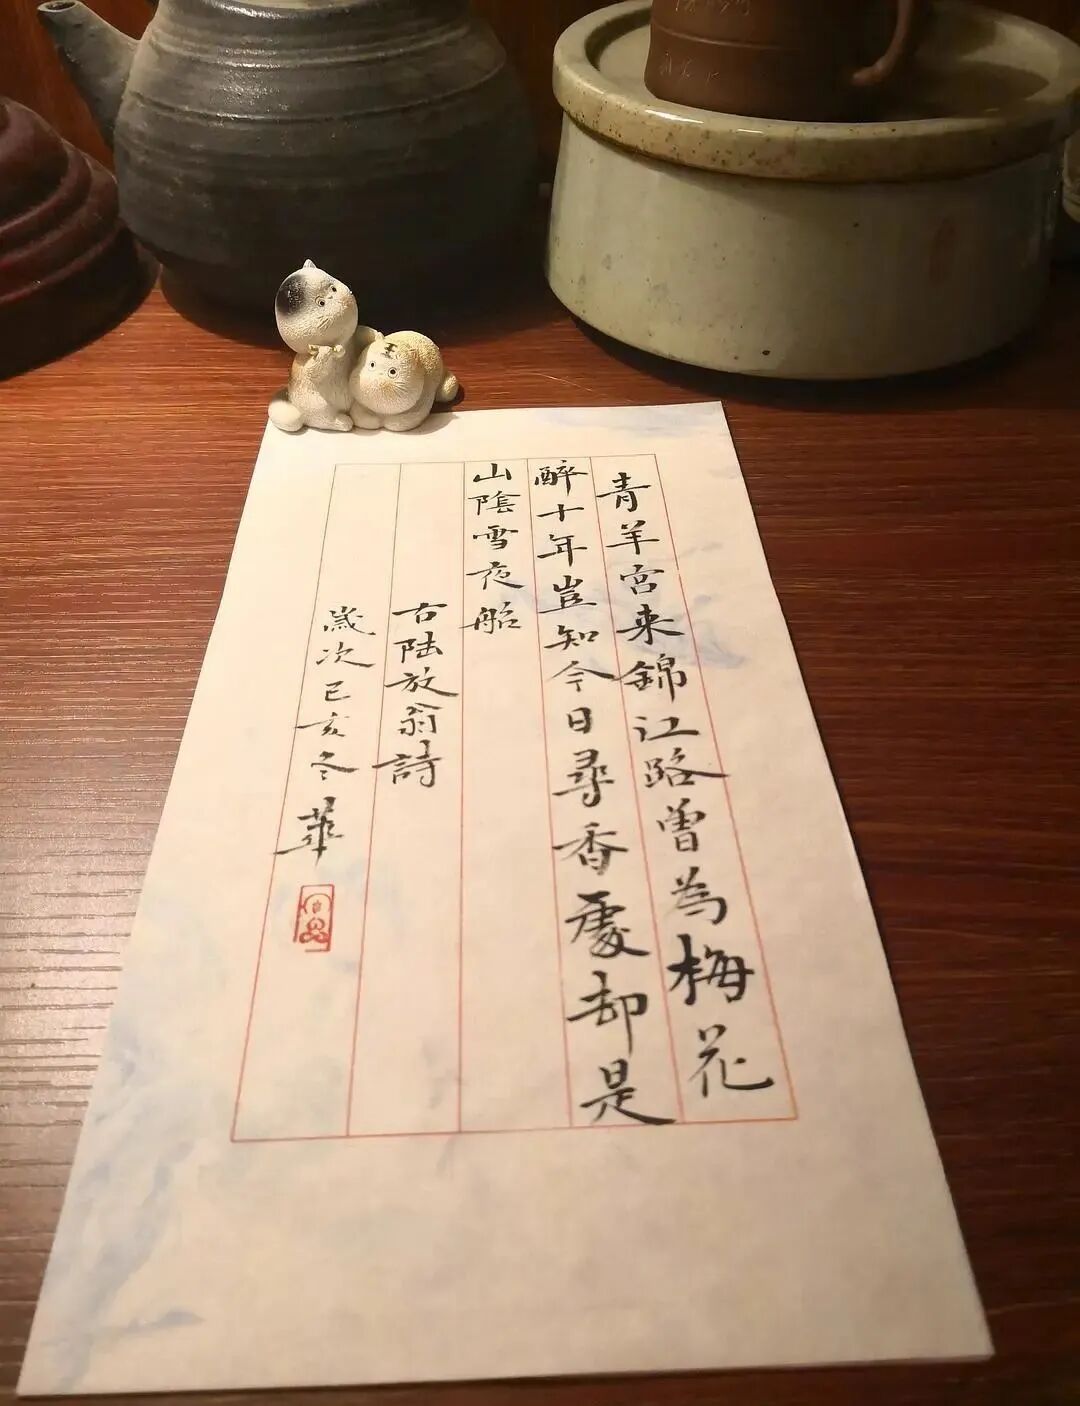 青羊宫来錦江路曾為梅花
醉十年豈知今日尋香處却是
山陰雪夜船
古陸放翁詩
歲次已亥冬華